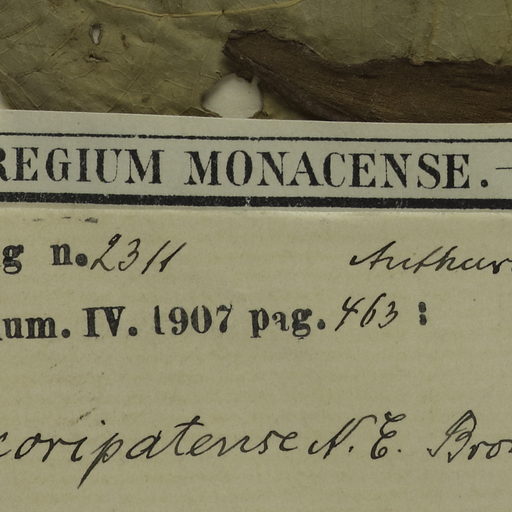 REGIUM MONACENSE. —
g n. 2311 Anthur
um. IV. 1907 pag. 463 :
coripatense N. E. Bro